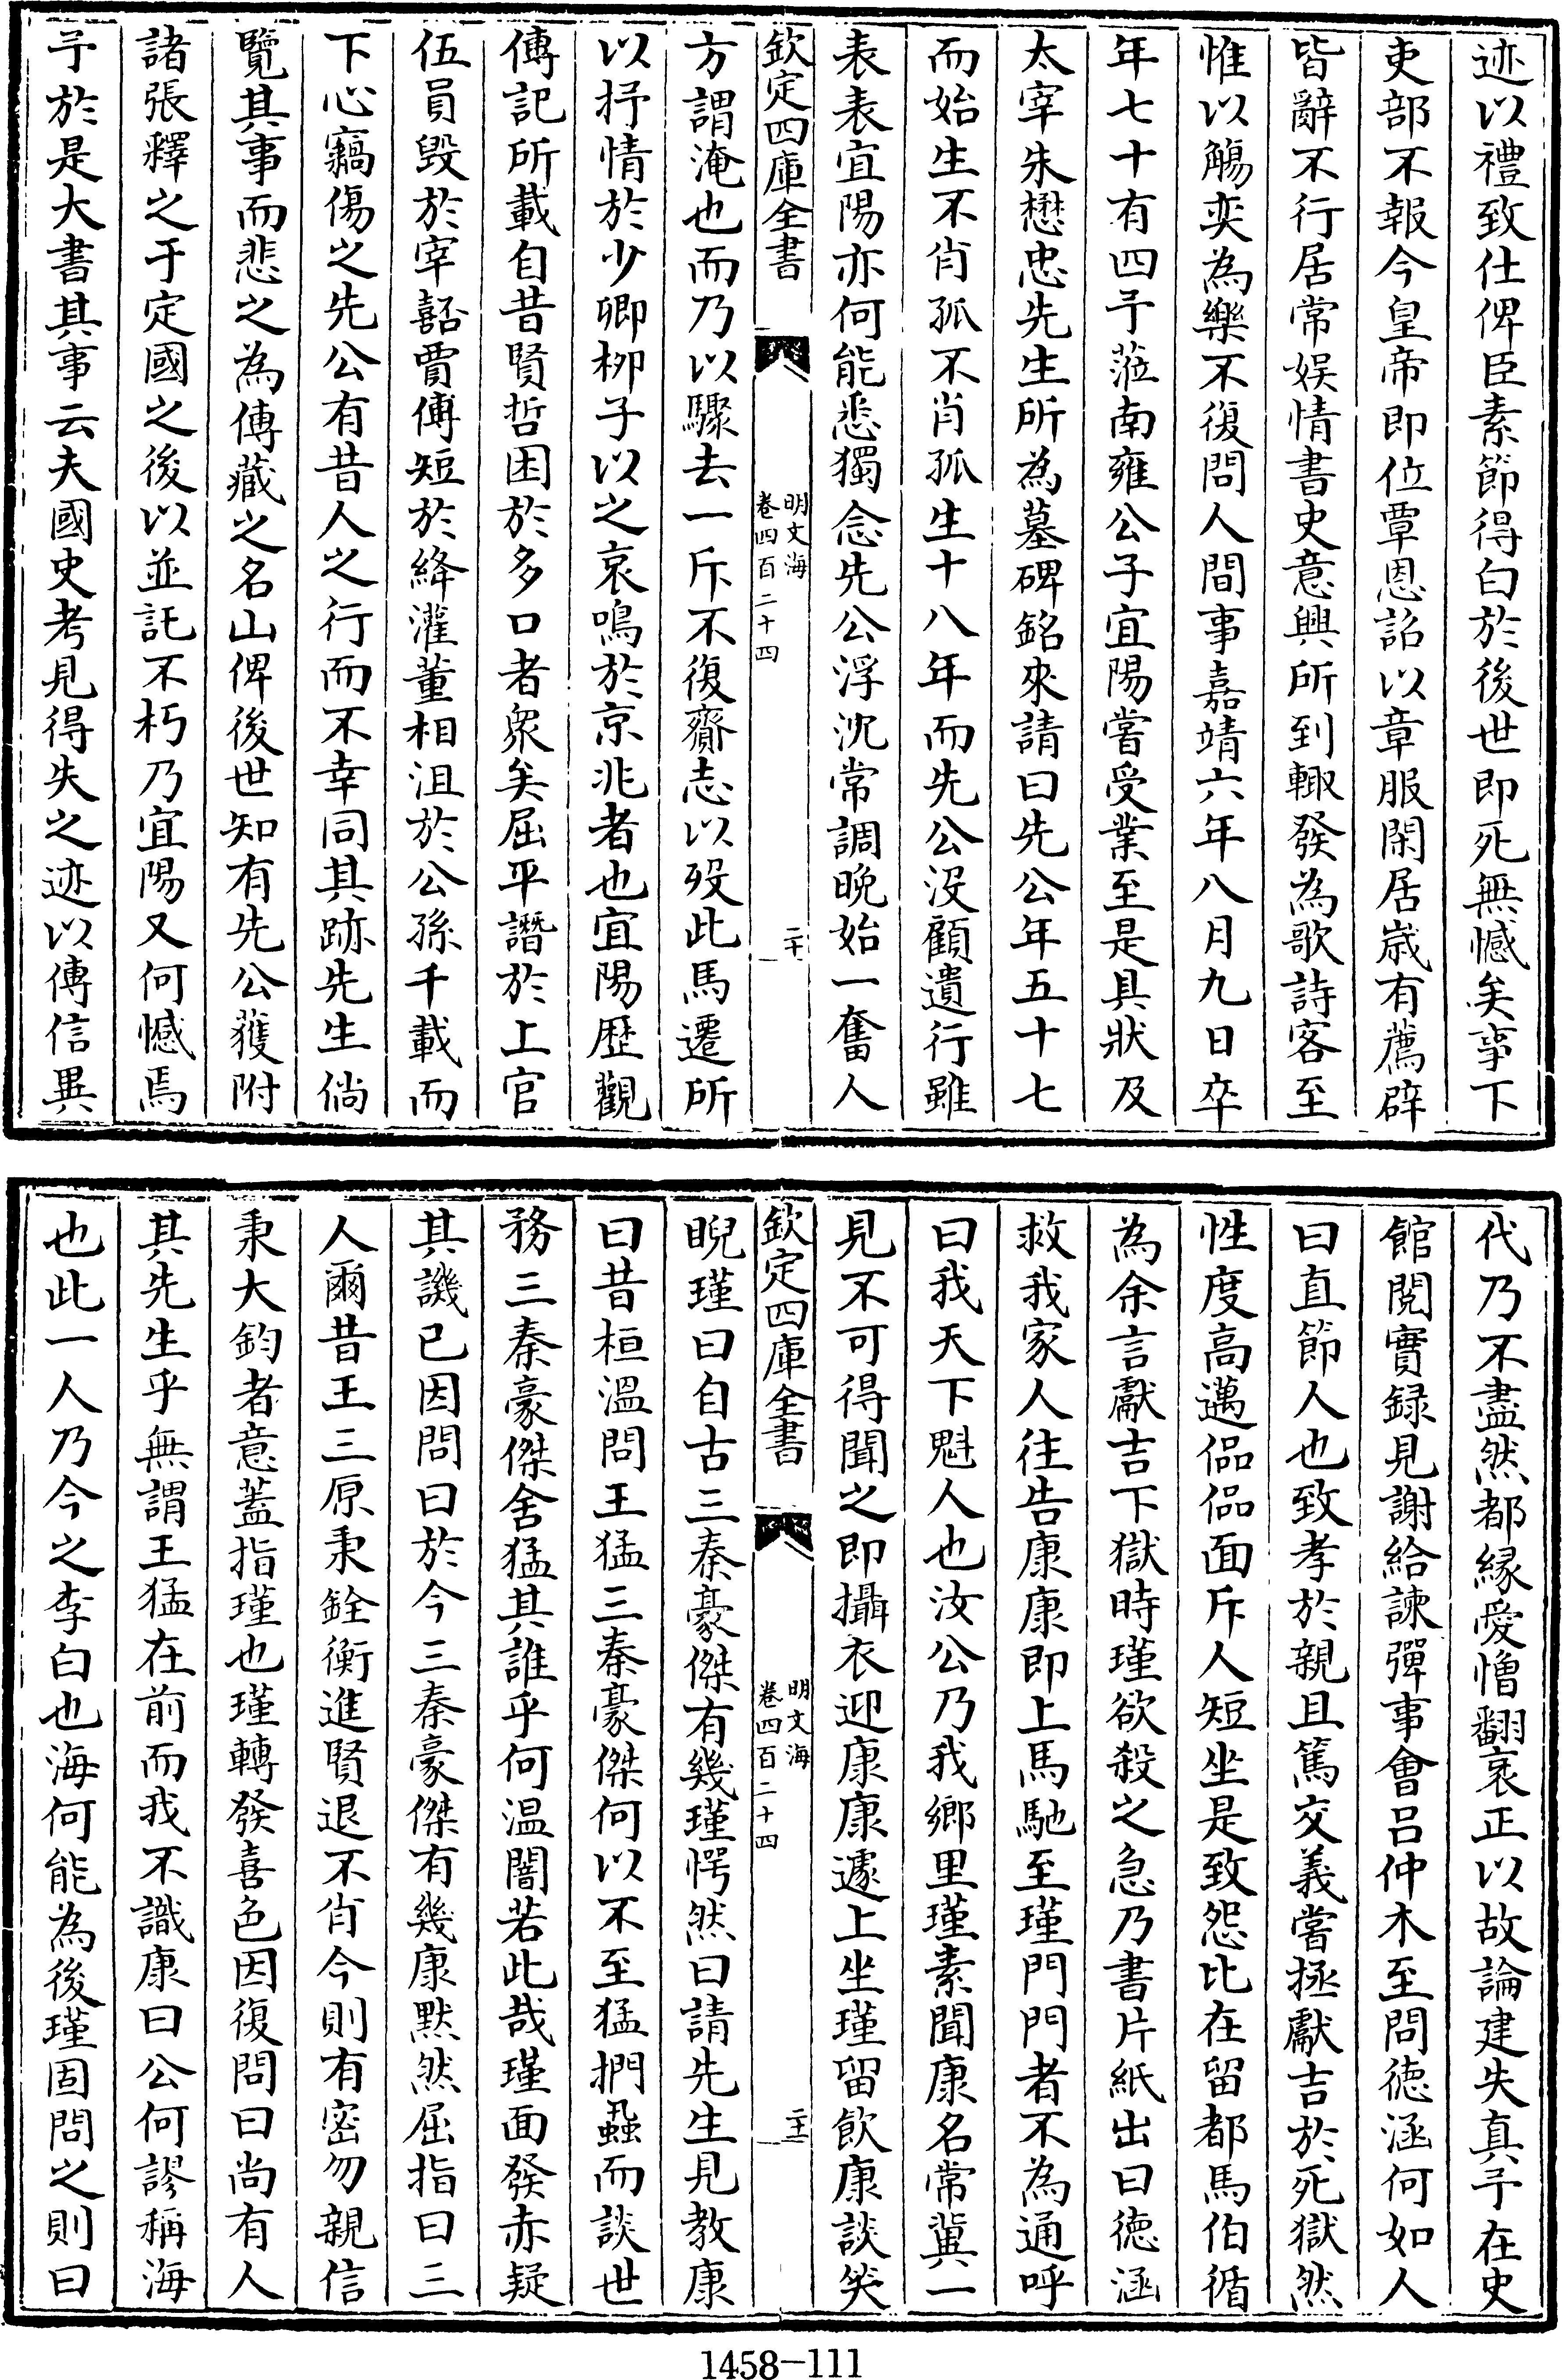 迹以禮致仕俾臣素節得白於後世即死無憾矣事下
吏部不報今皇帝即位覃恩詔以章服閑居歲有薦辟
皆辭不行居常娱情書史意興所到輙發為歌詩客至
惟以觴奕為樂不復問人間事嘉靖六年八月九日卒
年七十有四予蒞南雍公子宜陽嘗受業至是具狀及
太宰朱懋忠先生所為墓碑銘來請曰先公年五十七
而始生不肖孤不肖孤生十八年而先公沒顧遺行雖
表表宜陽亦何能悉獨念先公浮沈常調晩始一奮人
欽定四庫全書
明文海
卷四百二十四
二十
方謂淹也而乃以驟去一斥不復齎志以歿此馬遷所
以抒情於少卿栁子以之哀鳴於京兆者也宜陽歷觀
傳記所載自昔賢哲困於多口者衆矣屈平譖於上官
伍員毀於宰嚭賈傅短於絳灌董相沮於公孫千載而
下心竊傷之先公有昔人之行而不幸同其跡先生倘
覽其事而悲之為傳藏之名山俾後世知有先公獲附
諸張釋之于定國之後以並託不朽乃宜陽又何憾焉
予於是大書其事云夫國史考見得失之迹以傳信異
代乃不盡然都縁愛憎翻衮正以故論建失真予在史
館閲實録見謝給諫彈事會吕仲木至問徳涵何如人
曰直節人也致孝於親且篤交義嘗拯獻吉於死獄然
性度高邁偘偘面斥人短坐是致怨比在留都馬伯循
為余言獻吉下獄時瑾欲殺之急乃書片紙出曰徳涵
救我家人往告康康即上馬馳至瑾門門者不為通呼
曰我天下魁人也汝公乃我鄉里瑾素聞康名常冀一
見不可得聞之即攝衣迎康康遽上坐瑾留飲康談笑
欽定四庫全書
明文海
卷四百二十四
二十一
睨瑾曰自古三秦豪傑有幾瑾愕然曰請先生見教康
曰昔桓温問王猛三秦豪傑何以不至猛捫蝨而談世
務三秦豪傑舍猛其誰乎何温闇若此哉瑾面發赤疑
其譏已因問曰於今三秦豪傑有幾康默然屈指曰三
人爾昔王三原秉銓衡進賢退不肖今則有密勿親信
秉大鈞者意蓋指瑾也瑾轉發喜色因復問曰尚有人
其先生乎無謂王猛在前而我不識康曰公何謬稱海
也此一人乃今之李白也海何能為後瑾固問之則曰
1458-111